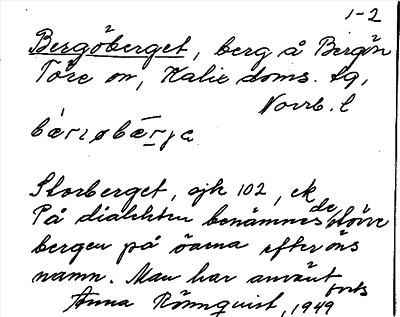 1-2
Bergöberget, berg å Bergön
Töre sn, Kalix doms. tg,
Norrb. l
bærrøbærja
Storberget, ajk 102, ek
På dialekten benämnes de större
bergen på öarna efter öns
namn. Man har använt
forts
Anna Rönnquist, 1949